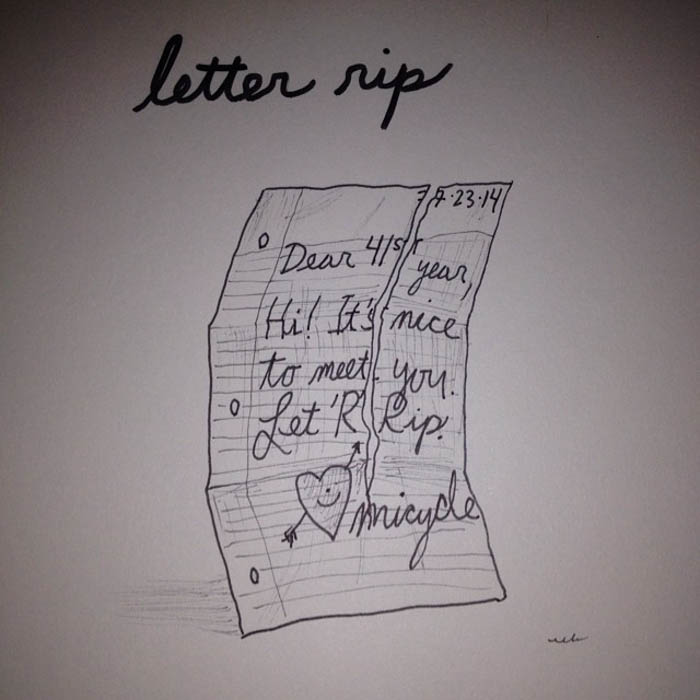 letter rip
7·23·14
Dear 41st year,
Hi! It's nice
to meet you.
Let 'R' Rip.